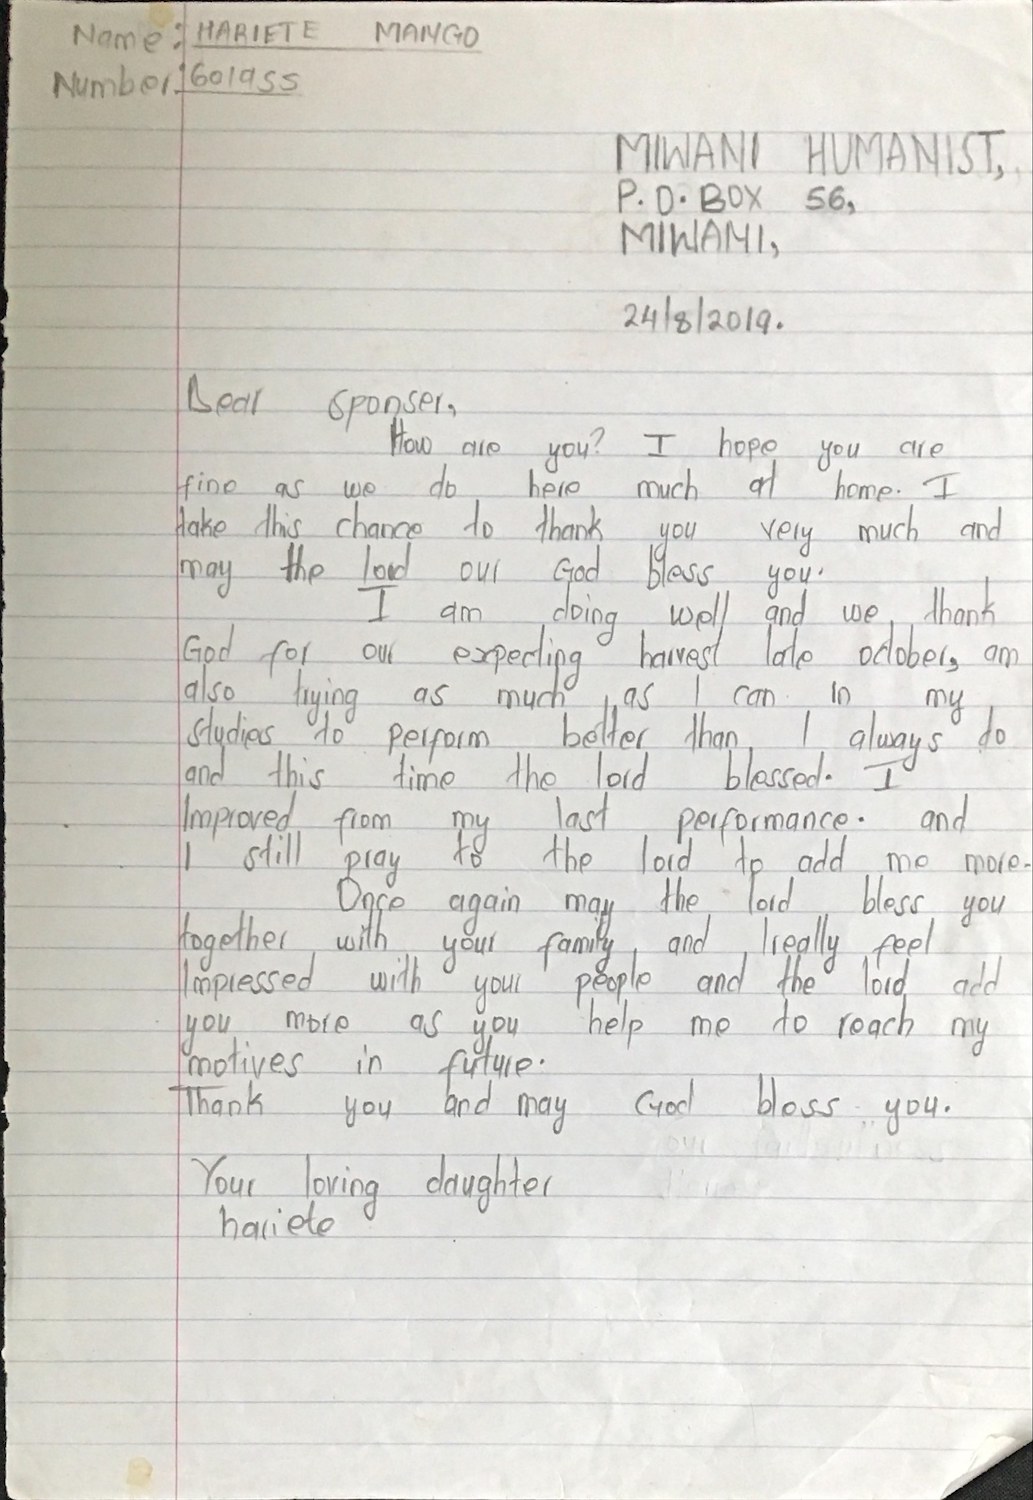 Name: HARIETE MANGO
Number: 601955
MIWANI HUMANIST,
P.O. BOX 56,
MIWANI,
24/8/2019.
Dear sponser,
How are you? I hope you are
fine as we do here much at home. I
take this chance to thank you very much and
may the lord our God bless you.
I am doing well and we thank
God for our expecting harvest late october, am
also trying as much as I can in my
studies to perform better than I always do
and this time the lord blessed. I
Improved from my last performance. and
I still pray to the lord to add me more.
Once again may the lord bless you
together with your family and I really feel
Impressed with your people and the lord add
you more as you help me to reach my
motives in future.
Thank you and may God bless you.
Your loving daughter
hariete